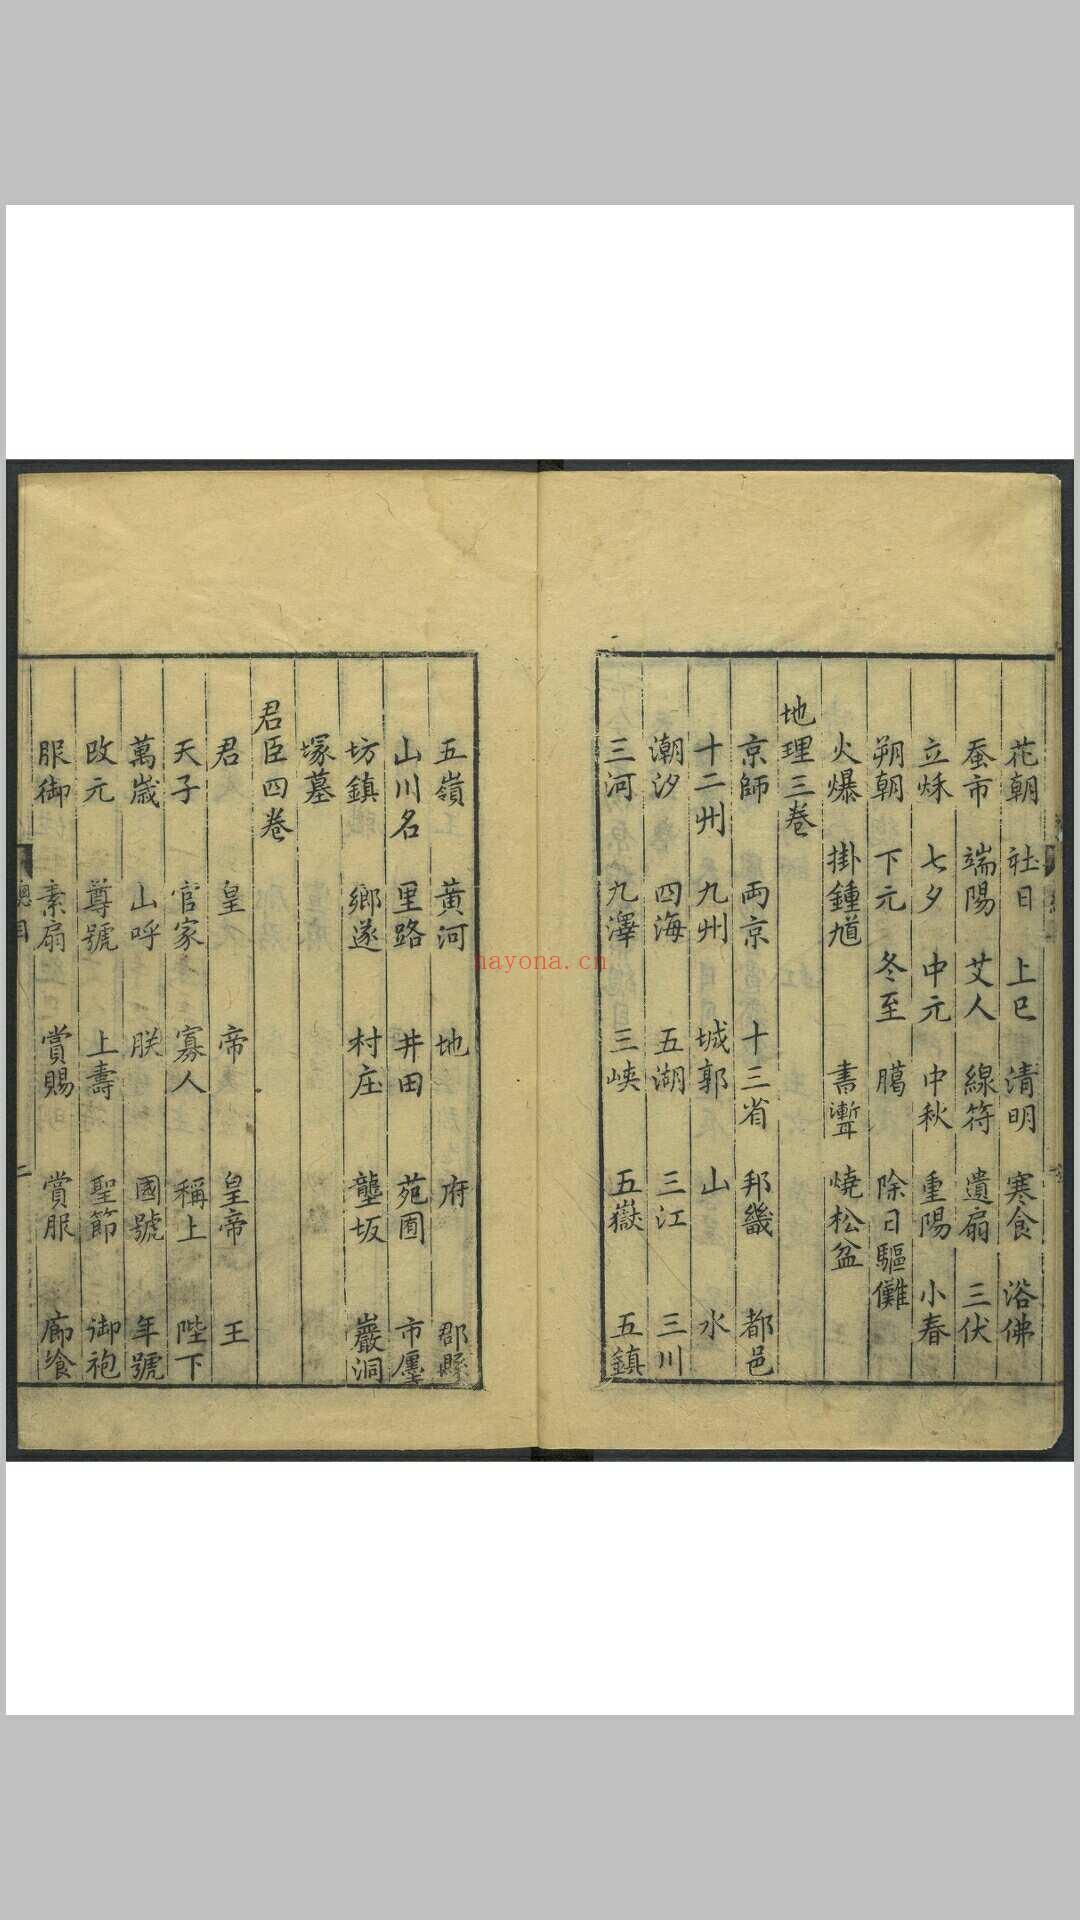 花朝 社日 上巳 清明 寒食 浴佛
蚕市 端陽 艾人 線符 遺扇 三伏
立秌 七夕 中元 中秋 重陽 小春
朔朝 下元 冬至 臈 除日驅儺
火爆 掛鍾馗 燒松盆
地理三卷
京師 両京 十三省 邦畿 都邑
十二州 九州 城郭 山 水
潮汐 四海 五湖 三江 三川
三河 九澤 三峽 五嶽 五鎮
五嶺 黃河 地 府 郡縣
山川名 里路 井田 苑囿 市廛
坊鎮 鄉遂 村庄 壟坂 巖洞
塚墓
君臣四卷
君 皇 帝 皇帝 王
天子 官家 寡人 稱上 陛下
萬歲 山呼 朕 國號 年號
改元 尊號 上壽 聖節 御袍
服御 素扇 賞賜 賞服 廊飡
nayona.cn